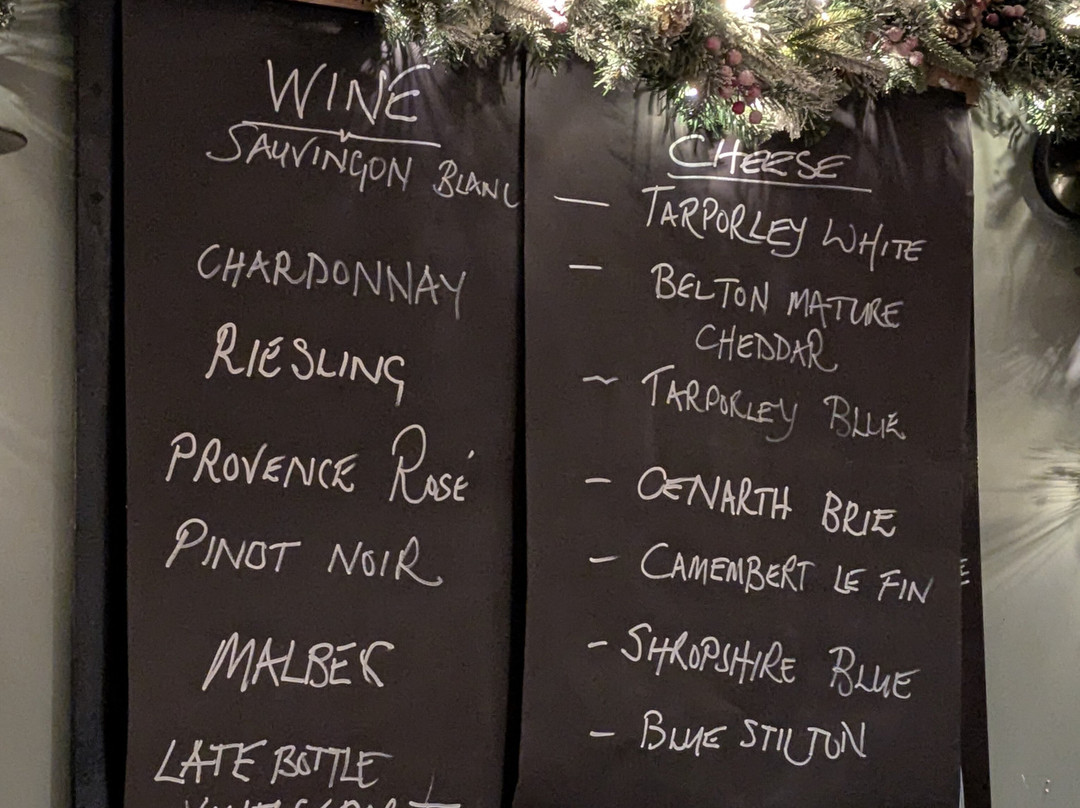 WINE
SAUVINGON BLANC
CHARDONNAY
RIESLING
PROVENCE ROSÉ
PINOT NOIR
MALBEC
LATE BOTTLE
CHEESE
— TARPORLEY WHITE
— BELTON MATURE
CHEDDAR
~ TARPORLEY BLUE
- OENARTH BRIE
- CAMEMBERT LE FIN
- SHROPSHIRE BLUE
- BLUE STILTON